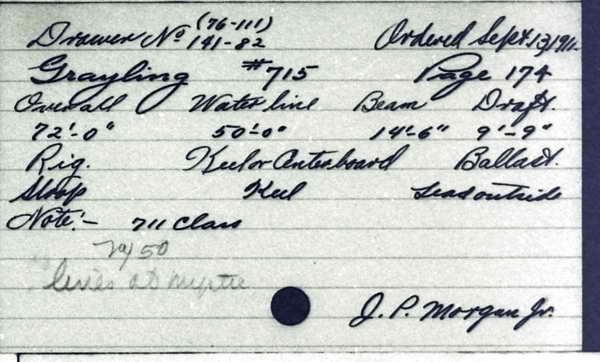 (76-111)
Drawer No 141-82 Ordered Sept 13, 1912
Grayling #715 Page 174
Overall Water line Beam Draft.
72'-0" 50'-0" 14'-6" 9'-9"
Rig. Keel or Centerboard Ballast.
Sloop Keel Lead outside
Note:- 711 Class
NY 50
lines at
J. P. Morgan Jr.